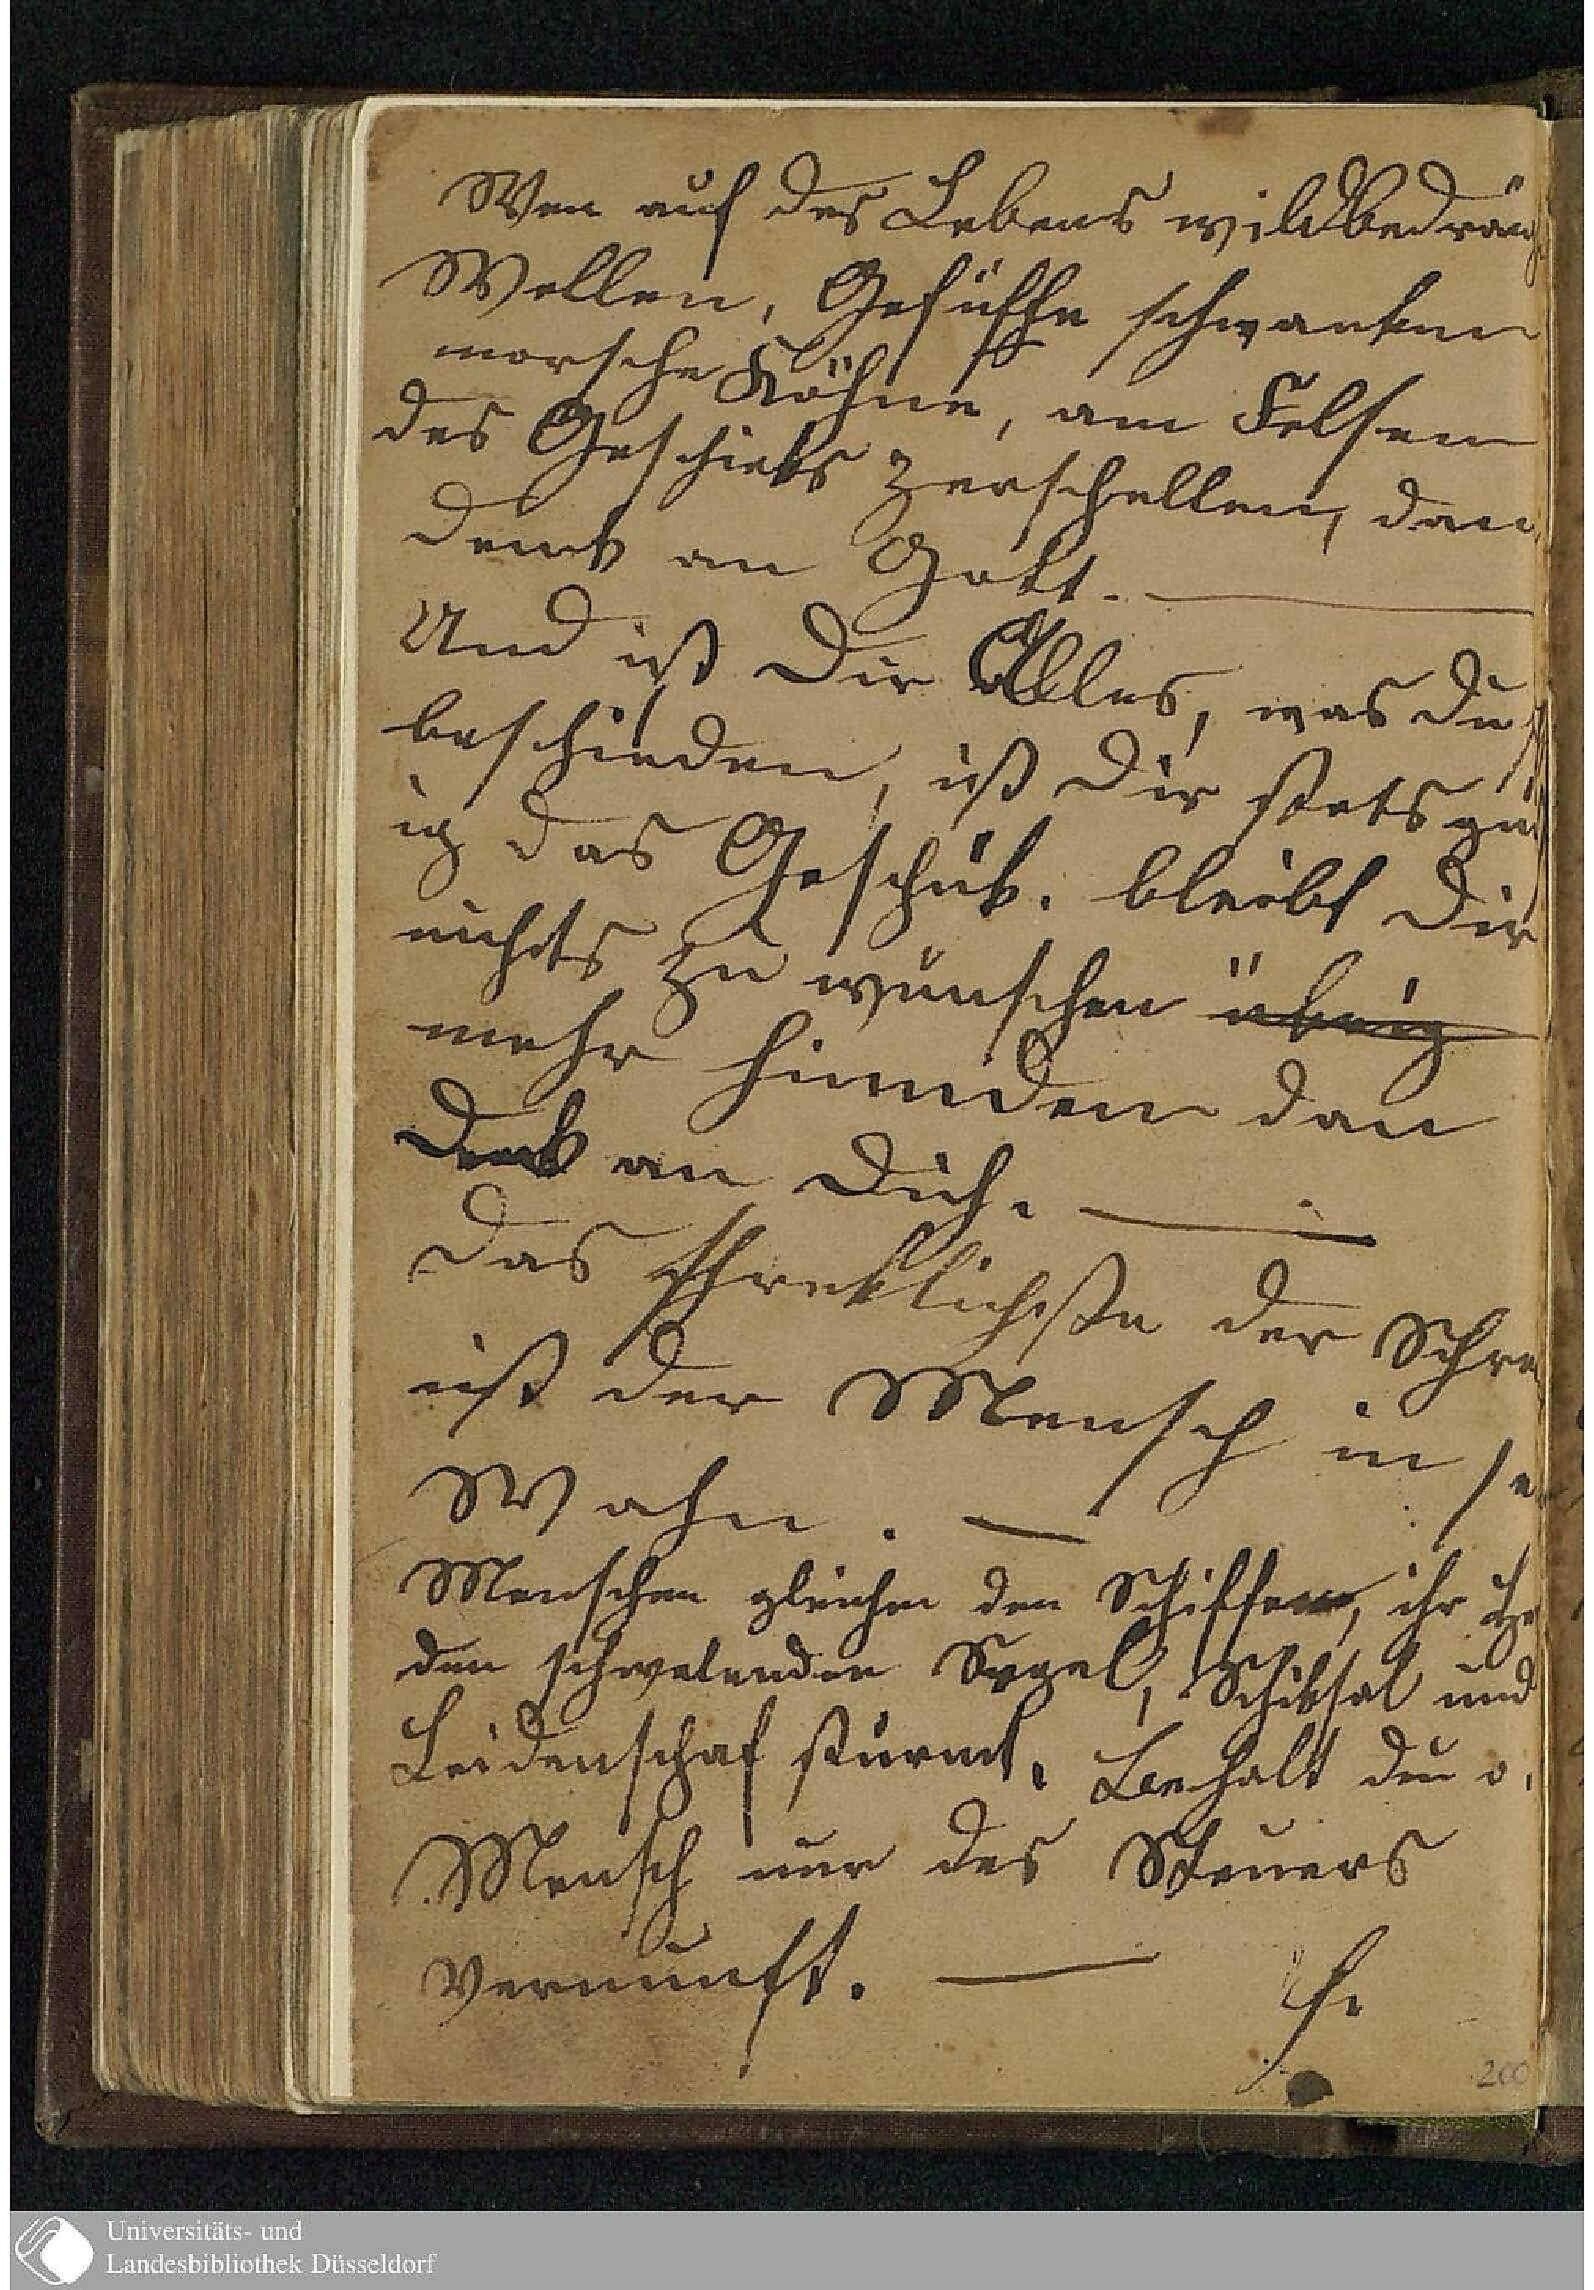 Wen auf des Lebens wildbedräng
Wellen, Gefühle schwanken
morsche Kähne, am Felsen
des Geschicks zerschellen, dan
denk an Gott.
Und ist Dir Alles, was du
beschieden, ist Dir stets gün
ig das Geschik. bleibt Dir
nichts zu wünschen übrig
mehr hinieden dan
Denk an Dich.
Das schreklichste der Schre
ist der Mensch in se
Wahn.
Menschen gleichen den Schiffen, ihr
den schwelenden Segel, Schiksal und
Leidenschaf stürmt. Behalt du o.
Mensch nur des Steuers
Vernunft.
H.
200
Universitäts- und
Landesbibliothek Düsseldorf